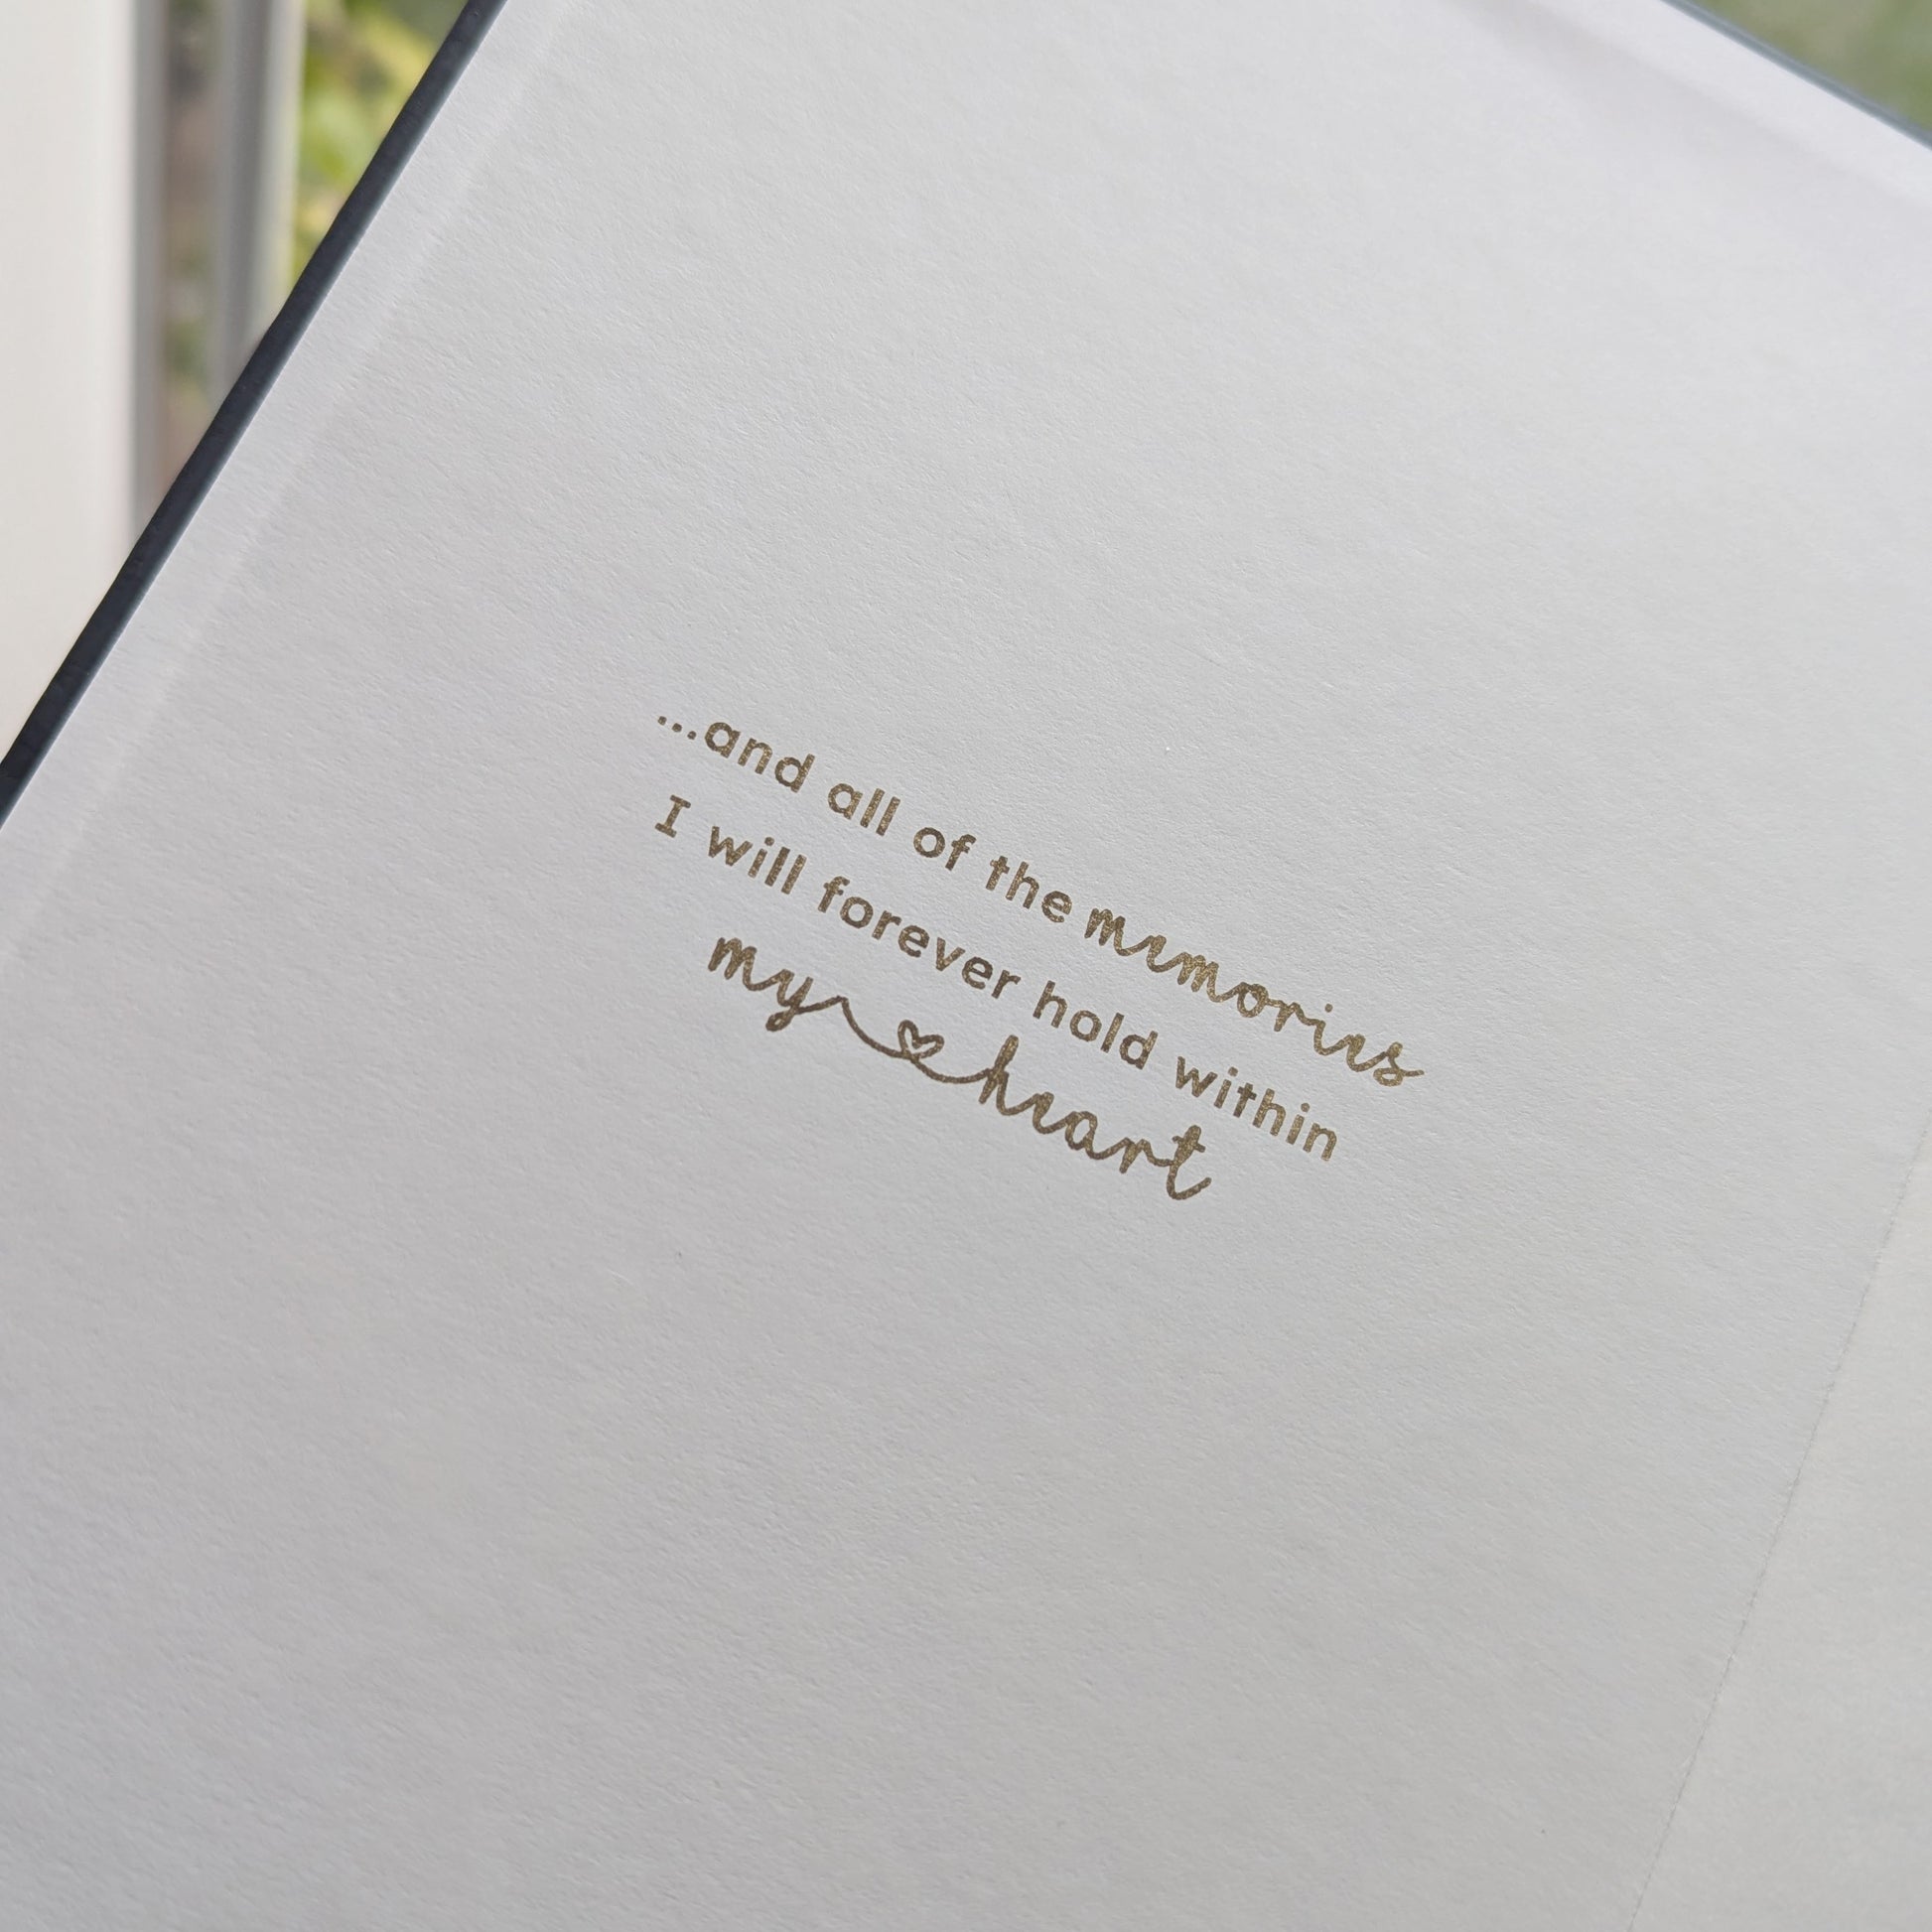 ...and all of the memories
I will forever hold within
my heart